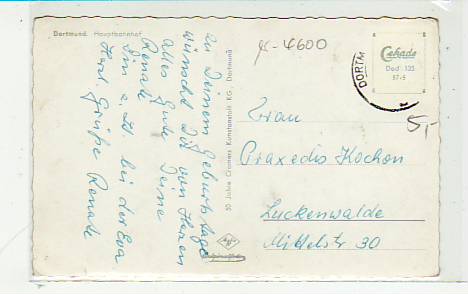 Dortmund. Hauptbahnhof
Zu Deinem Geburtstage
wünscht Dir von Herzen
alles Gute Deine
Renate
Bin z. Zt. bei der Eva
Herzl. Grüße Renate
50 Jahre Cramers Kunstanstalt K.G., Dortmund
4600
Cekade
Dod 135
57-5
DORTM
5,-
Frau
Praxedis Kochon
Luckenwalde
Mittelstr 30